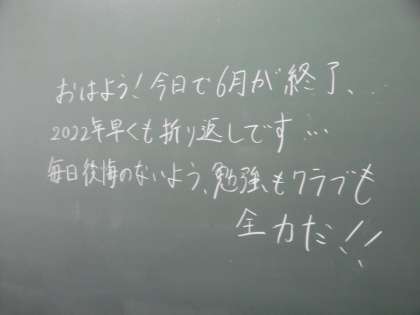 おはよう!今日で6月が終了、..
2022年早くも折り返しです…
毎日後悔のないよう、勉強もクラブも
全力だ!!